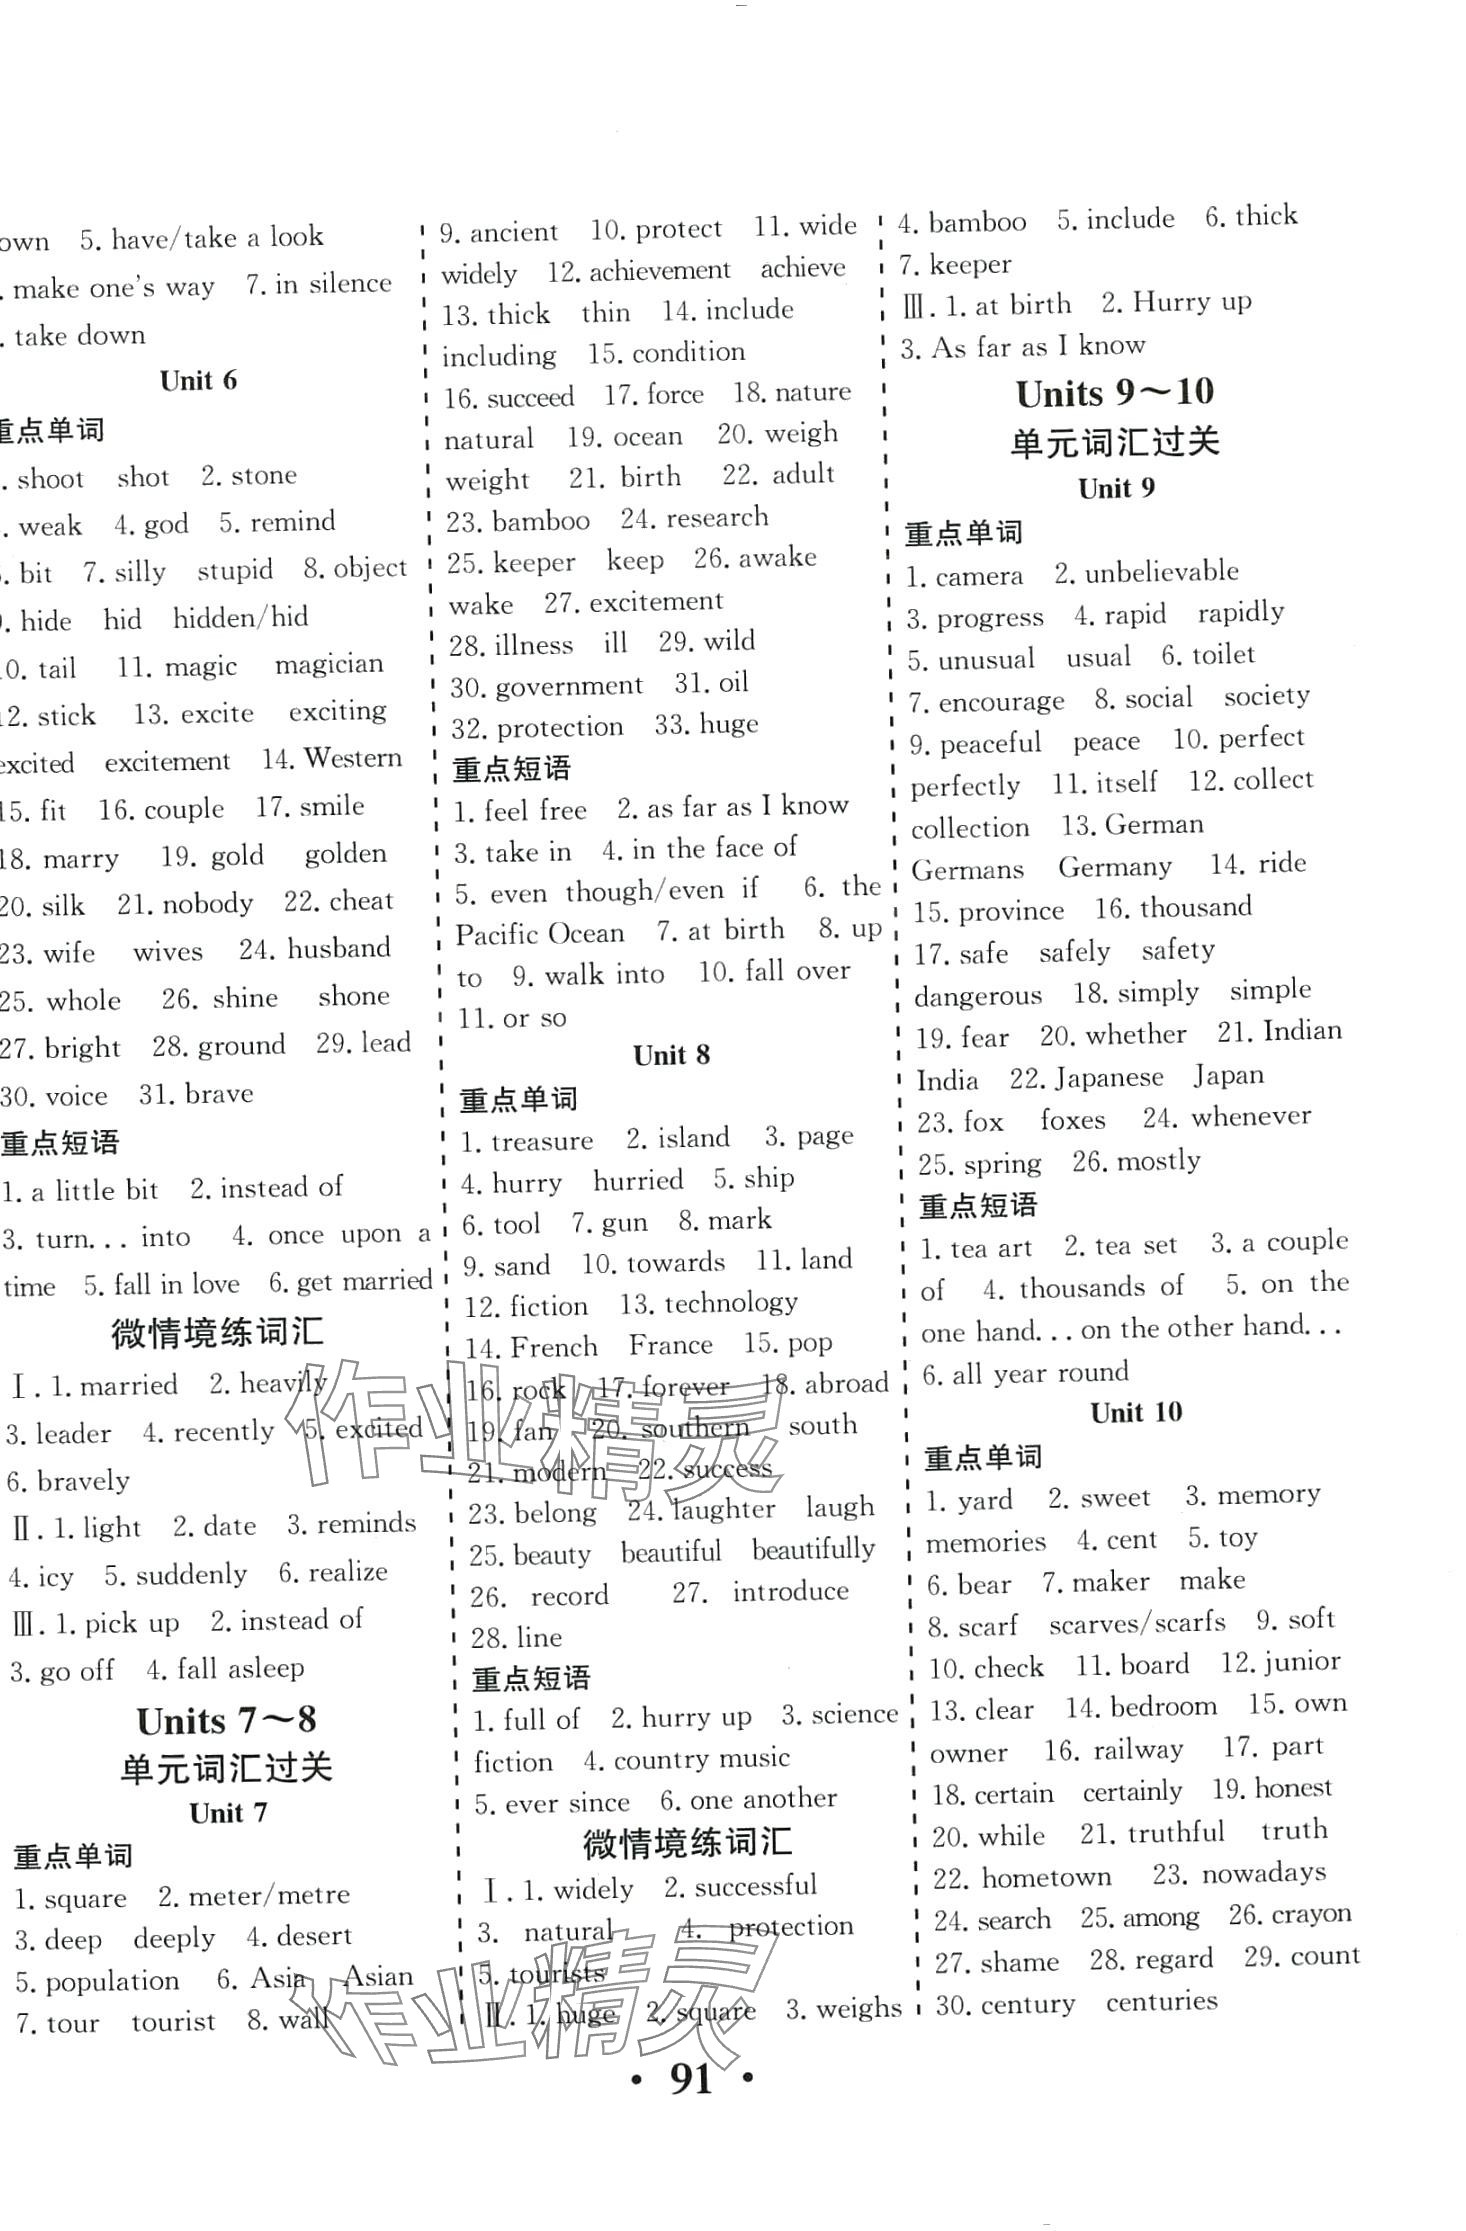 own 5. have/take a look
. make one's way 7. in silence
. take down
Unit 6
重点单词
. shoot shot 2. stone
. weak 4. god 5. remind
. bit 7. silly stupid 8. object
. hide hid hidden/hid
10. tail 11. magic magician
12. stick 13. excite exciting
excited excitement 14. Western
15. fit 16. couple 17. smile
18. marry 19. gold golden
20. silk 21. nobody 22. cheat
23. wife wives 24. husband
25. whole 26. shine shone
27. bright 28. ground 29. lead
30. voice 31. brave
重点短语
1. a little bit 2. instead of
3. turn... into 4. once upon a
time 5. fall in love 6. get married
微情境练词汇
Ⅰ. 1. married 2. heavily
3. leader 4. recently 5. excited
6. bravely
Ⅱ. 1. light 2. date 3. reminds
4. icy 5. suddenly 6. realize
Ⅲ. 1. pick up 2. instead of
3. go off 4. fall asleep
Units 7～8
单元词汇过关
Unit 7
重点单词
1. square 2. meter/metre
3. deep deeply 4. desert
5. population 6. Asia Asian
7. tour tourist 8. wall
9. ancient 10. protect 11. wide
widely 12. achievement achieve
13. thick thin 14. include
including 15. condition
16. succeed 17. force 18. nature
natural 19. ocean 20. weigh
weight 21. birth 22. adult
23. bamboo 24. research
25. keeper keep 26. awake
wake 27. excitement
28. illness ill 29. wild
30. government 31. oil
32. protection 33. huge
重点短语
1. feel free 2. as far as I know
3. take in 4. in the face of
5. even though/even if 6. the
Pacific Ocean 7. at birth 8. up
to 9. walk into 10. fall over
11. or so
Unit 8
重点单词
1. treasure 2. island 3. page
4. hurry hurried 5. ship
6. tool 7. gun 8. mark
9. sand 10. towards 11. land
12. fiction 13. technology
14. French France 15. pop
16. rock 17. forever 18. abroad
19. fan 20. southern south
21. modern 22. success
23. belong 24. laughter laugh
25. beauty beautiful beautifully
26. record 27. introduce
28. line
重点短语
1. full of 2. hurry up 3. science
fiction 4. country music
5. ever since 6. one another
微情境练词汇
Ⅰ. 1. widely 2. successful
3. natural 4. protection
5. tourists
Ⅱ. 1. huge 2. square 3. weighs
4. bamboo 5. include 6. thick
7. keeper
Ⅲ. 1. at birth 2. Hurry up
3. As far as I know
Units 9～10
单元词汇过关
Unit 9
重点单词
1. camera 2. unbelievable
3. progress 4. rapid rapidly
5. unusual usual 6. toilet
7. encourage 8. social society
9. peaceful peace 10. perfect
perfectly 11. itself 12. collect
collection 13. German
Germans Germany 14. ride
15. province 16. thousand
17. safe safely safety
dangerous 18. simply simple
19. fear 20. whether 21. Indian
India 22. Japanese Japan
23. fox foxes 24. whenever
25. spring 26. mostly
重点短语
1. tea art 2. tea set 3. a couple
of 4. thousands of 5. on the
one hand... on the other hand...
6. all year round
Unit 10
重点单词
1. yard 2. sweet 3. memory
memories 4. cent 5. toy
6. bear 7. maker make
8. scarf scarves/scarfs 9. soft
10. check 11. board 12. junior
13. clear 14. bedroom 15. own
owner 16. railway 17. part
18. certain certainly 19. honest
20. while 21. truthful truth
22. hometown 23. nowadays
24. search 25. among 26. crayon
27. shame 28. regard 29. count
30. century centuries
作业精灵
作业精灵
• 91 •